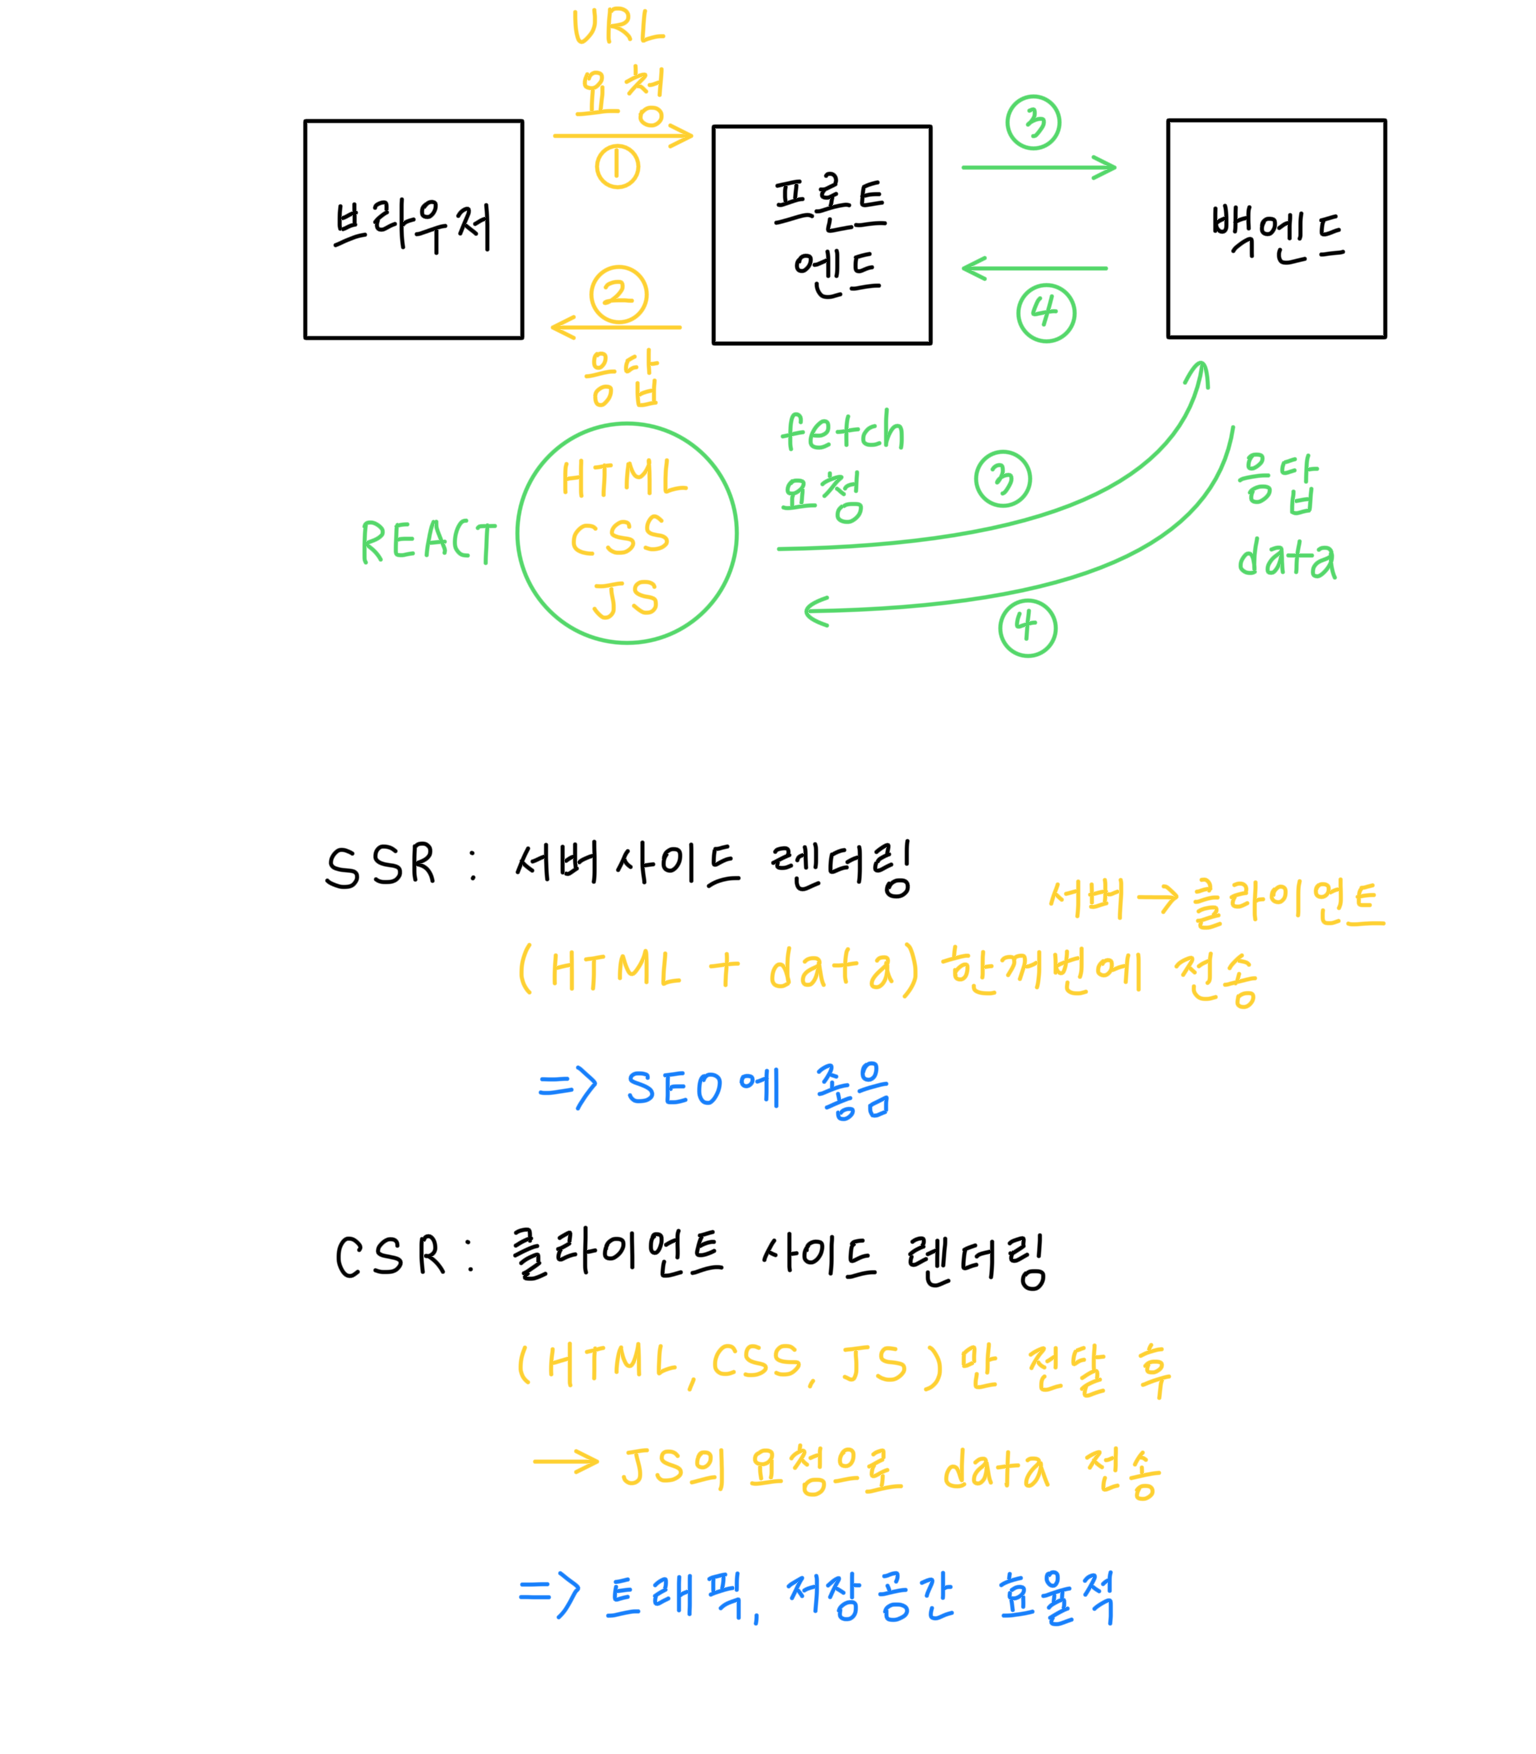 URL
요청
①
브라우저
프론트
엔드
③
백엔드
②
④
응답
HTML
CSS
JS
REACT
fetch
요청
③
응답
data
④
SSR : 서버사이드 렌더링
서버 → 클라이언트
(HTML + data) 한꺼번에 전송
=> SEO에 좋음
CSR : 클라이언트 사이드 렌더링
(HTML, CSS, JS)만 전달 후
→ JS의 요청으로 data 전송
=> 트래픽, 저장공간 효율적